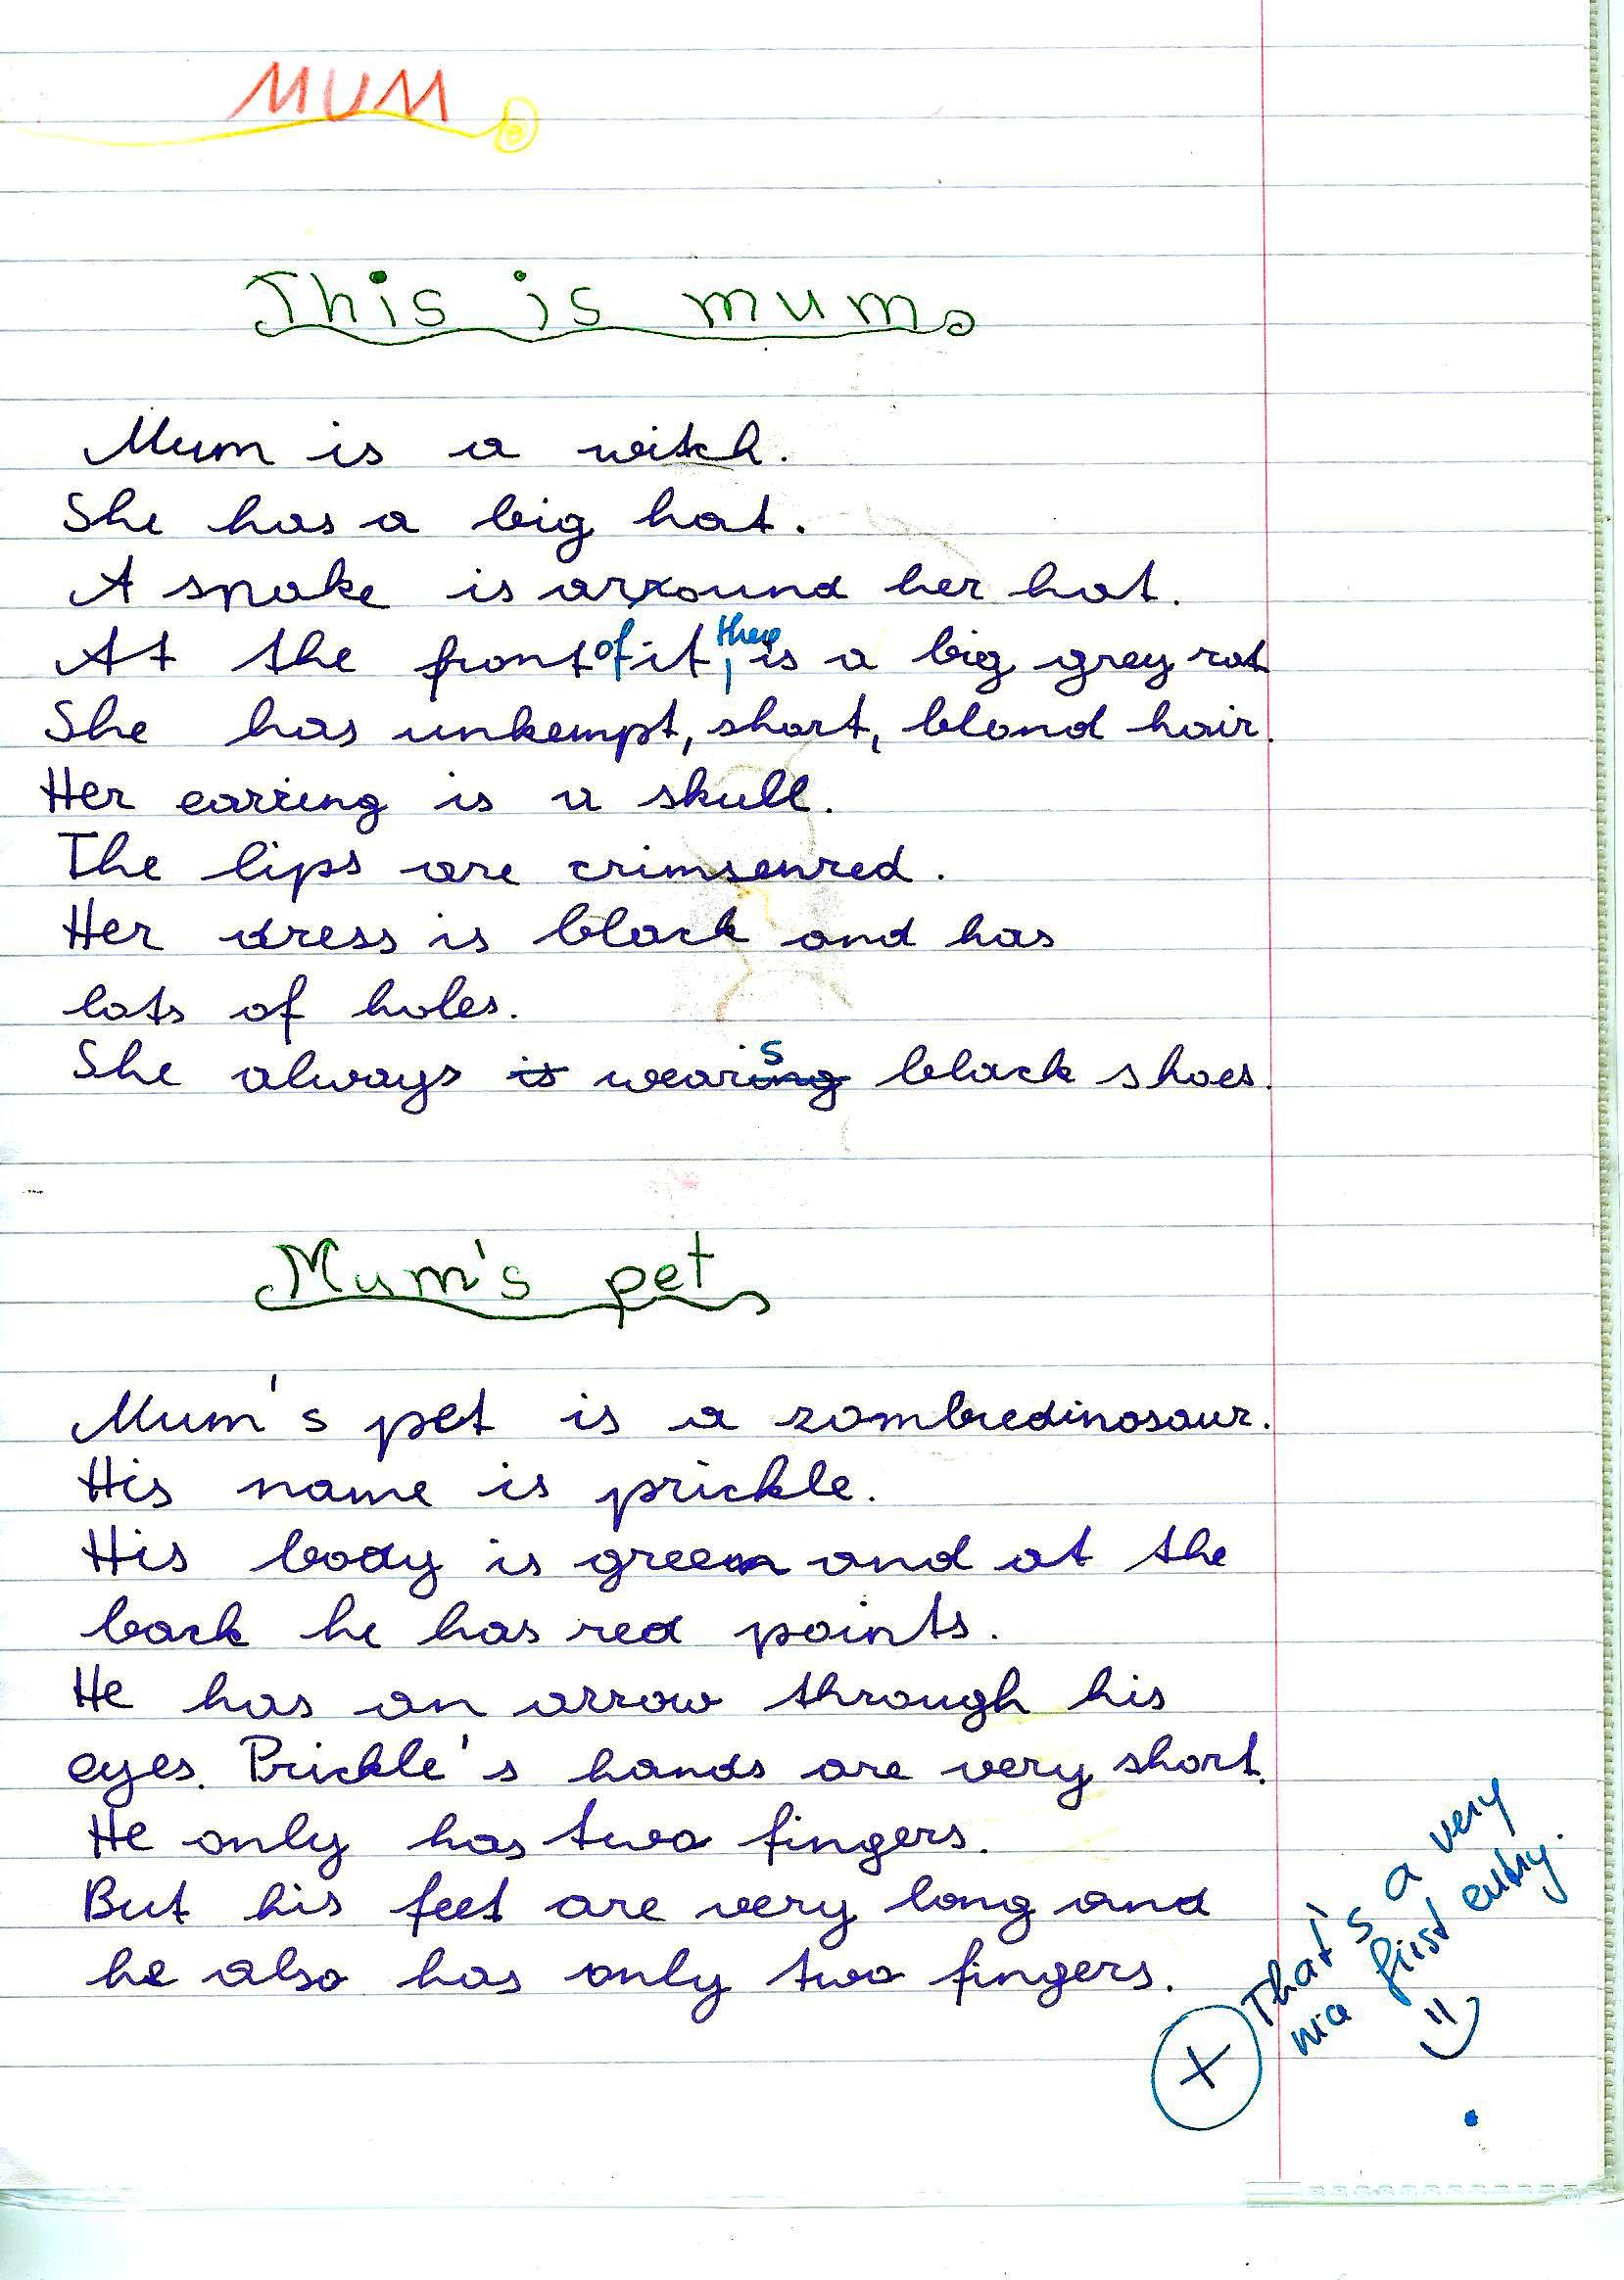 MUM
This is mum
Mum is a witch.
She has a big hat.
A snake is arround her hat.
At the front of it, there is a big grey rat
She has unkempt, short, blond hair.
Her earring is a skull.
The lips are crimsenred.
Her dress is black and has
lots of holes.
She always is wearings black shoes.
Mum's pet
Mum's pet is a zombiedinosaur.
His name is prickle.
His body is green and at the
back he has red points.
He has an arrow through his
eyes. Prickle's hands are very short.
He only has two fingers.
But his feet are very long and
he also has only two fingers.
+ That's a very
nice first entry.